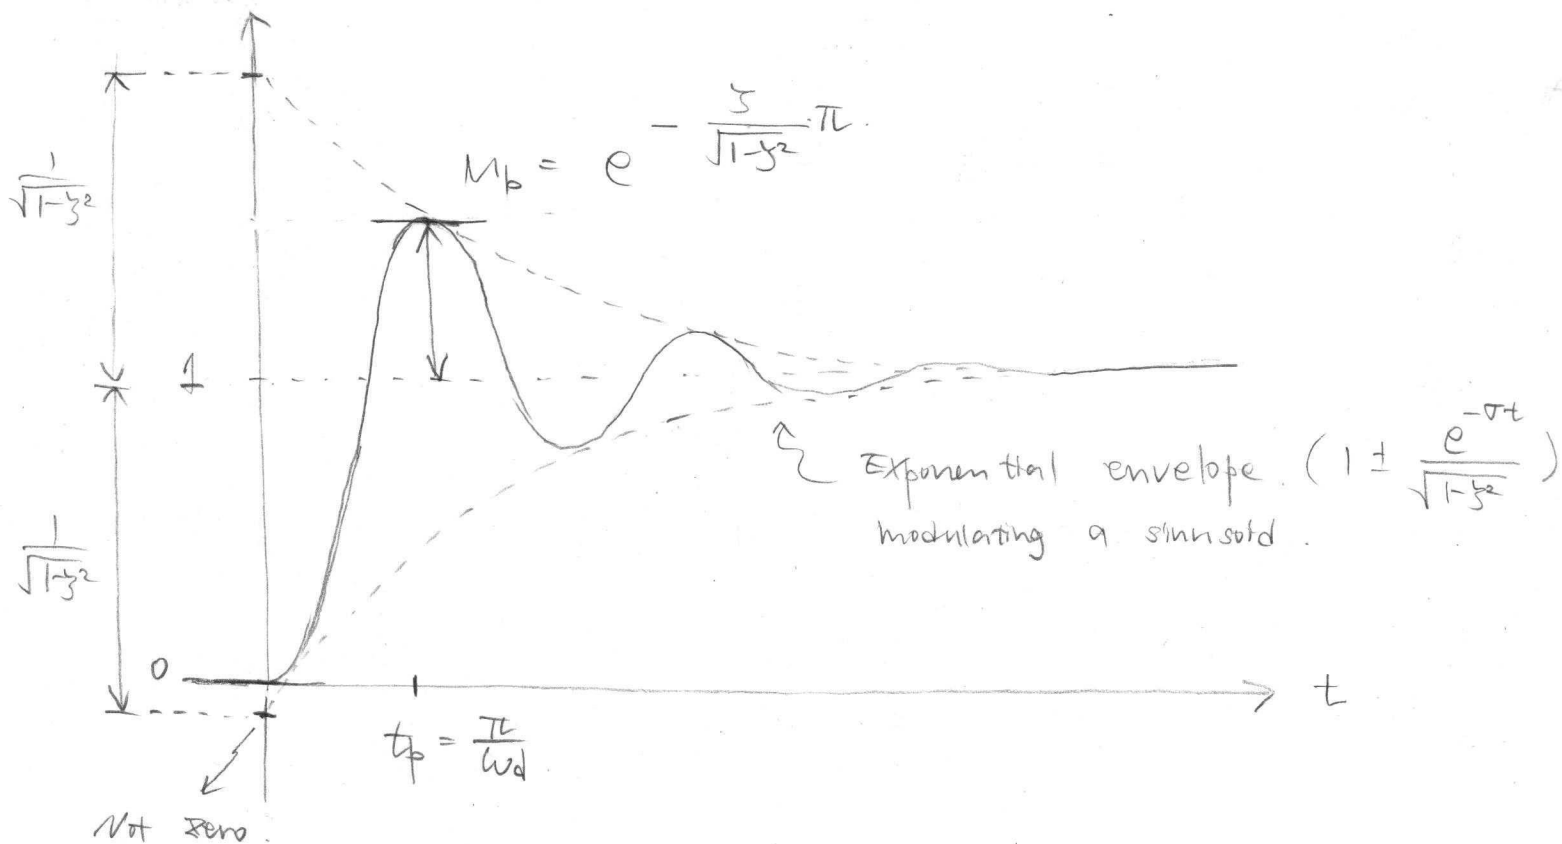 1/√(1-ζ²)
M_p = e^(-ζ/√(1-ζ²) · π)
1
Exponential envelope. (1 ± e^(-σt)/√(1-ζ²))
modulating a sinusoid.
1/√(1-ζ²)
0
t
t_p = π/ω_d
Not zero.